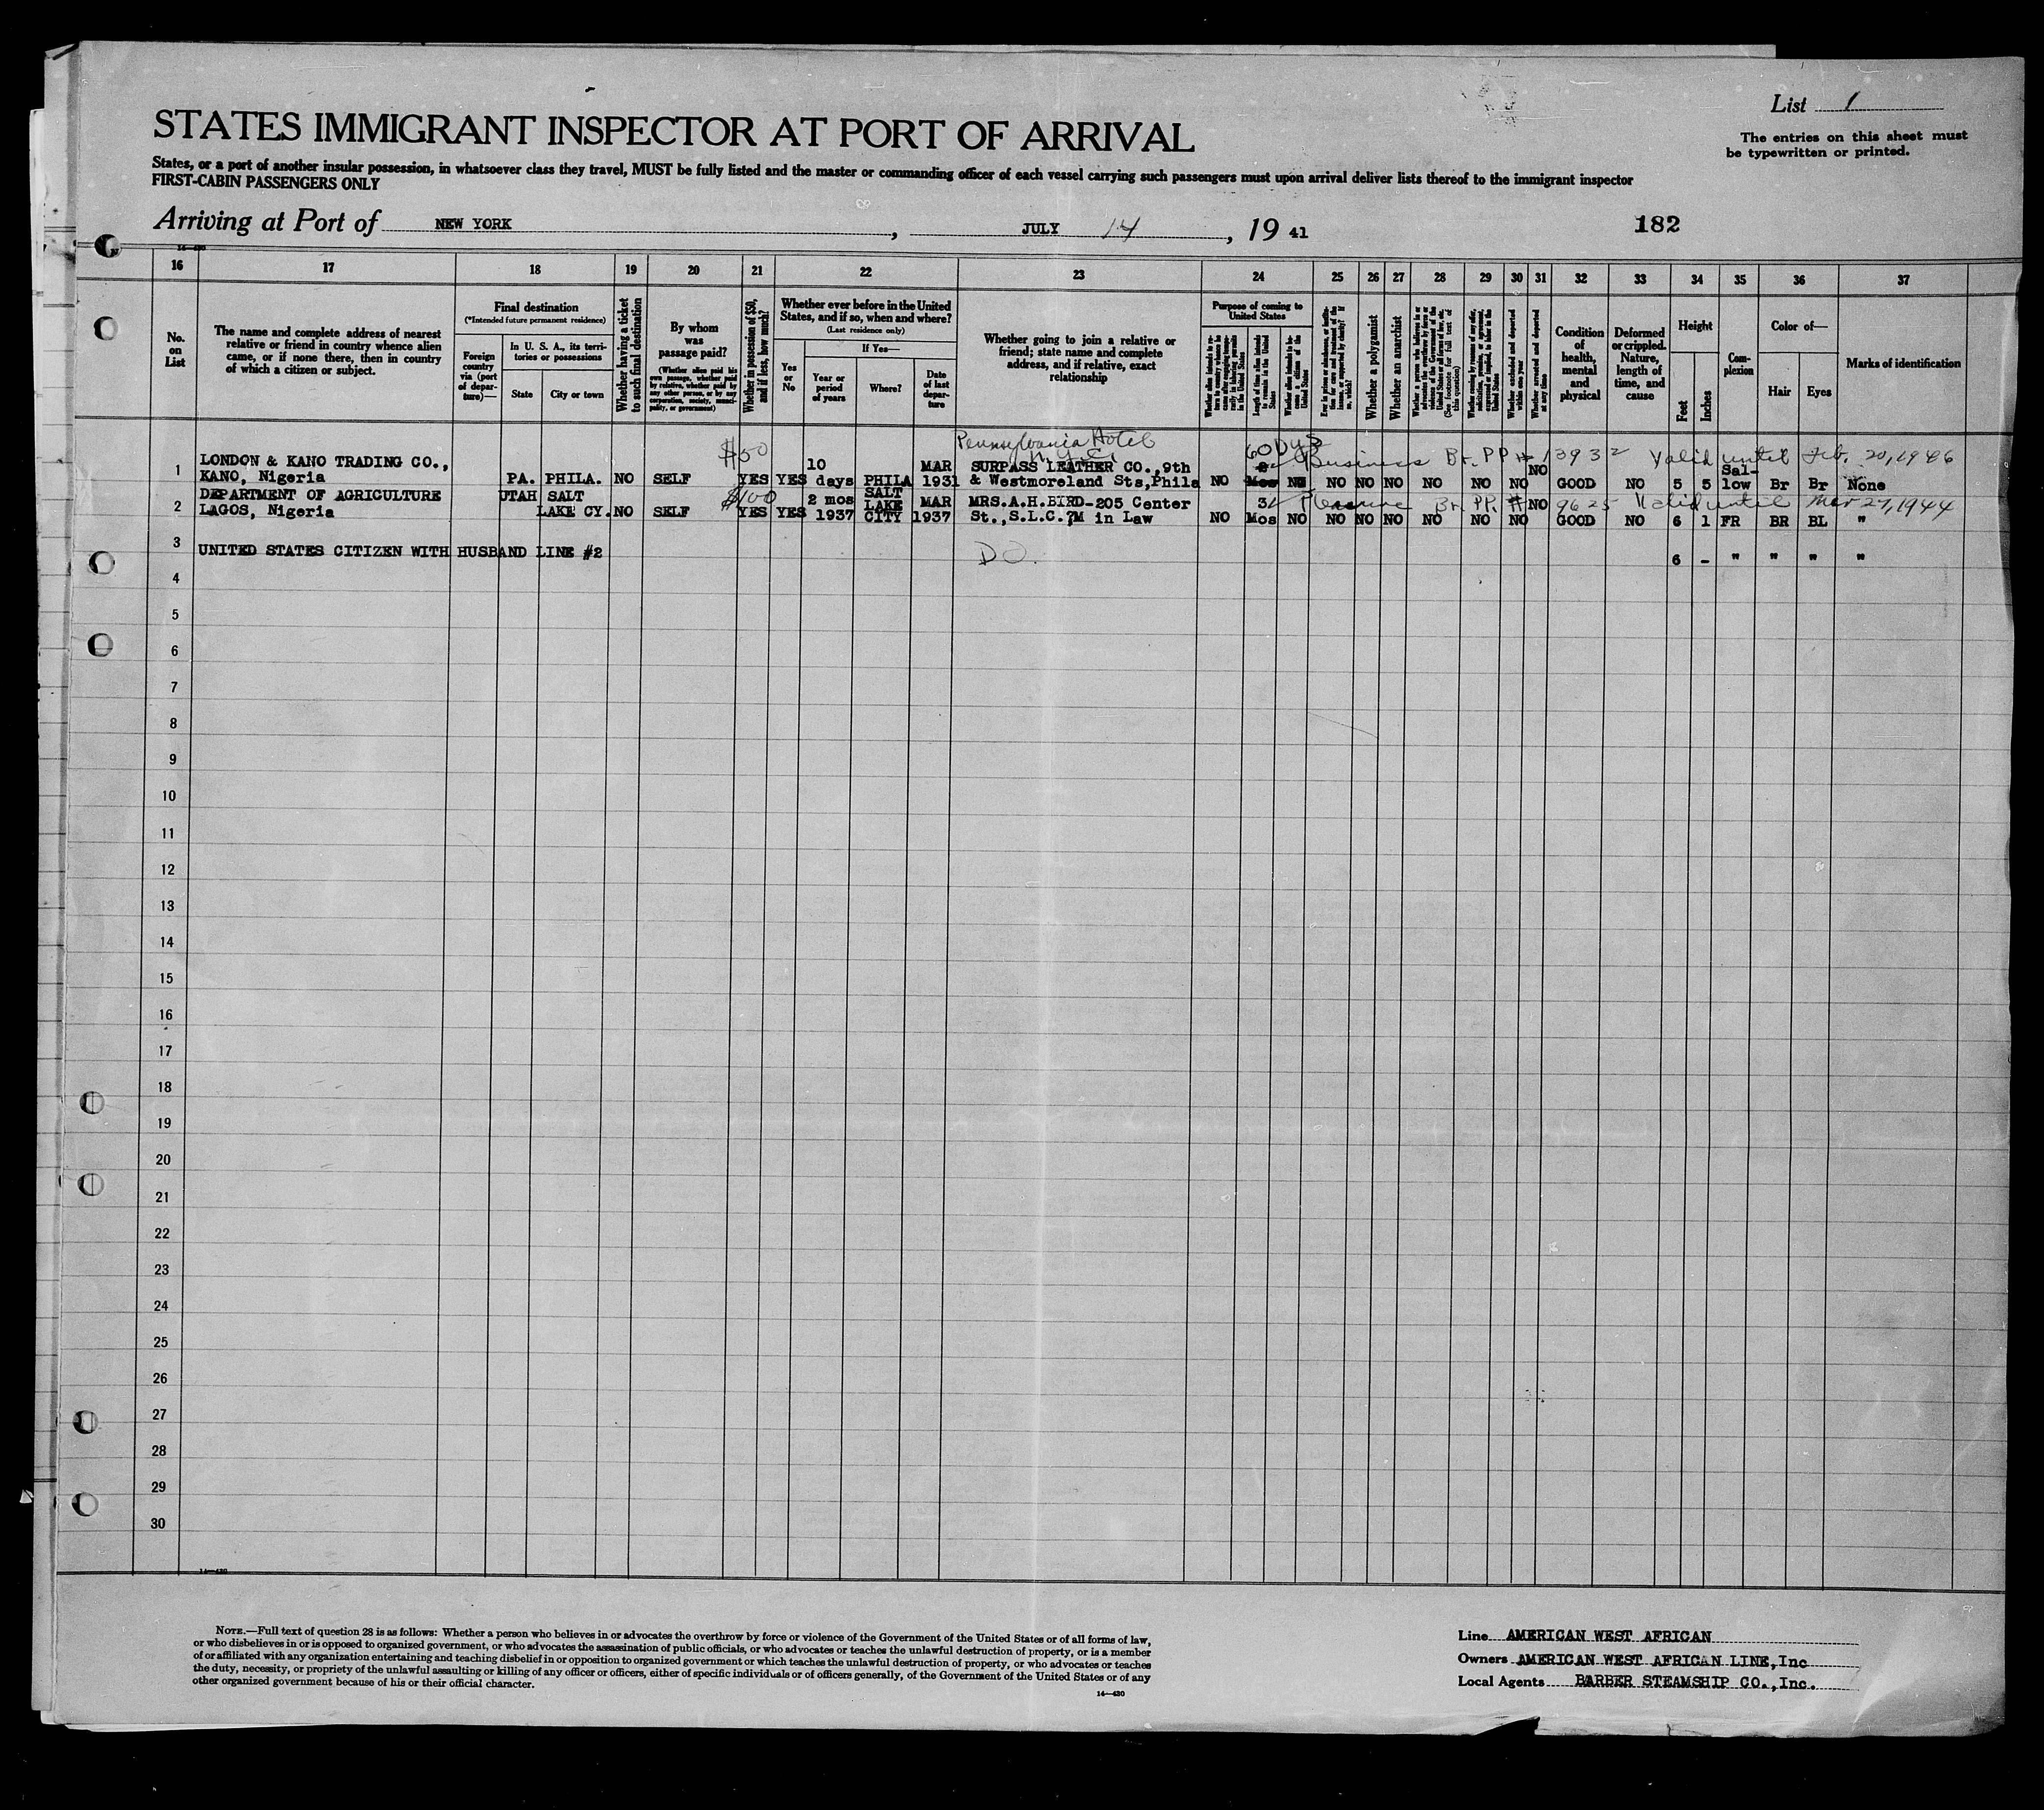 List 1
STATES IMMIGRANT INSPECTOR AT PORT OF ARRIVAL
The entries on this sheet must
be typewritten or printed.
States, or a port of another insular possession, in whatsoever class they travel, MUST be fully listed and the master or commanding officer of each vessel carrying such passengers must upon arrival deliver lists thereof to the immigrant inspector
FIRST-CABIN PASSENGERS ONLY
Arriving at Port of NEW YORK, JULY 14, 19 41
182
14—430
16 17 18 19 20 21 22 23 24 25 26 27 28 29 30 31 32 33 34 35 36 37
No. on List
The name and complete address of nearest
relative or friend in country whence alien
came, or if none there, then in country
of which a citizen or subject.
Final destination
(*Intended future permanent residence)
Foreign country via (port of departure)—
In U. S. A., its territories or possessions
State
City or town
Whether having a ticket to such final destination
By whom was passage paid?
(Whether alien paid his own passage, whether paid by relative, whether paid by any other person, or by any corporation, society, municipality, or government)
Whether in possession of $50, and if less, how much?
Whether ever before in the United States, and if so, when and where?
(Last residence only)
Yes or No
If Yes—
Year or period of years
Where?
Date of last departure
Whether going to join a relative or
friend; state name and complete
address, and if relative, exact
relationship
Purpose of coming to United States
Length of time alien intends to remain in the United States
Whether alien intends to become a citizen of the United States
Whether a polygamist
Whether an anarchist
Whether excluded and deported within one year
Whether arrested and deported at any time
Condition of health, mental and physical
Deformed or crippled. Nature, length of time, and cause
Height
Feet
Inches
Complexion
Color of—
Hair
Eyes
Marks of identification
$50 Pennsylvania Hotel 60 Dys
N.Y.C.
Business Br. PP # 13932 Valid until Feb. 20, 1946
1 LONDON & KANO TRADING CO., 10 MAR SURPASS LEATHER CO.,9th NO Sal-
KANO, Nigeria PA. PHILA. NO SELF YES YES days PHILA 1931 & Westmoreland Sts,Phila NO Mos NO NO NO NO NO NO NO GOOD NO 5 5 low Br Br None
$100 Pleasure Br. PP. # 9625 Valid until Mar 27, 1944
2 DEPARTMENT OF AGRICULTURE UTAH SALT 2 mos SALT LAKE MAR MRS.A.H.BIRD-205 Center 3 NO
LAGOS, Nigeria LAKE CY. NO SELF YES YES 1937 CITY 1937 St.,S.L.C.?M in Law NO Mos NO NO NO NO NO NO NO GOOD NO 6 1 FR BR BL "
3 UNITED STATES CITIZEN WITH HUSBAND LINE #2 DO. 6 - " " " "
4
5
6
7
8
9
10
11
12
13
14
15
16
17
18
19
20
21
22
23
24
25
26
27
28
29
30
14—430
NOTE.—Full text of question 28 is as follows: Whether a person who believes in or advocates the overthrow by force or violence of the Government of the United States or of all forms of law,
or who disbelieves in or is opposed to organized government, or who advocates the assassination of public officials, or who advocates or teaches the unlawful destruction of property, or is a member
of or affiliated with any organization entertaining and teaching disbelief in or opposition to organized government or which teaches the unlawful destruction of property, or who advocates or teaches
the duty, necessity, or propriety of the unlawful assaulting or killing of any officer or officers, either of specific individuals or of officers generally, of the Government of the United States or of any
other organized government because of his or their official character.
14—430
Line AMERICAN WEST AFRICAN
Owners AMERICAN WEST AFRICAN LINE,Inc
Local Agents BARBER STEAMSHIP CO.,Inc.